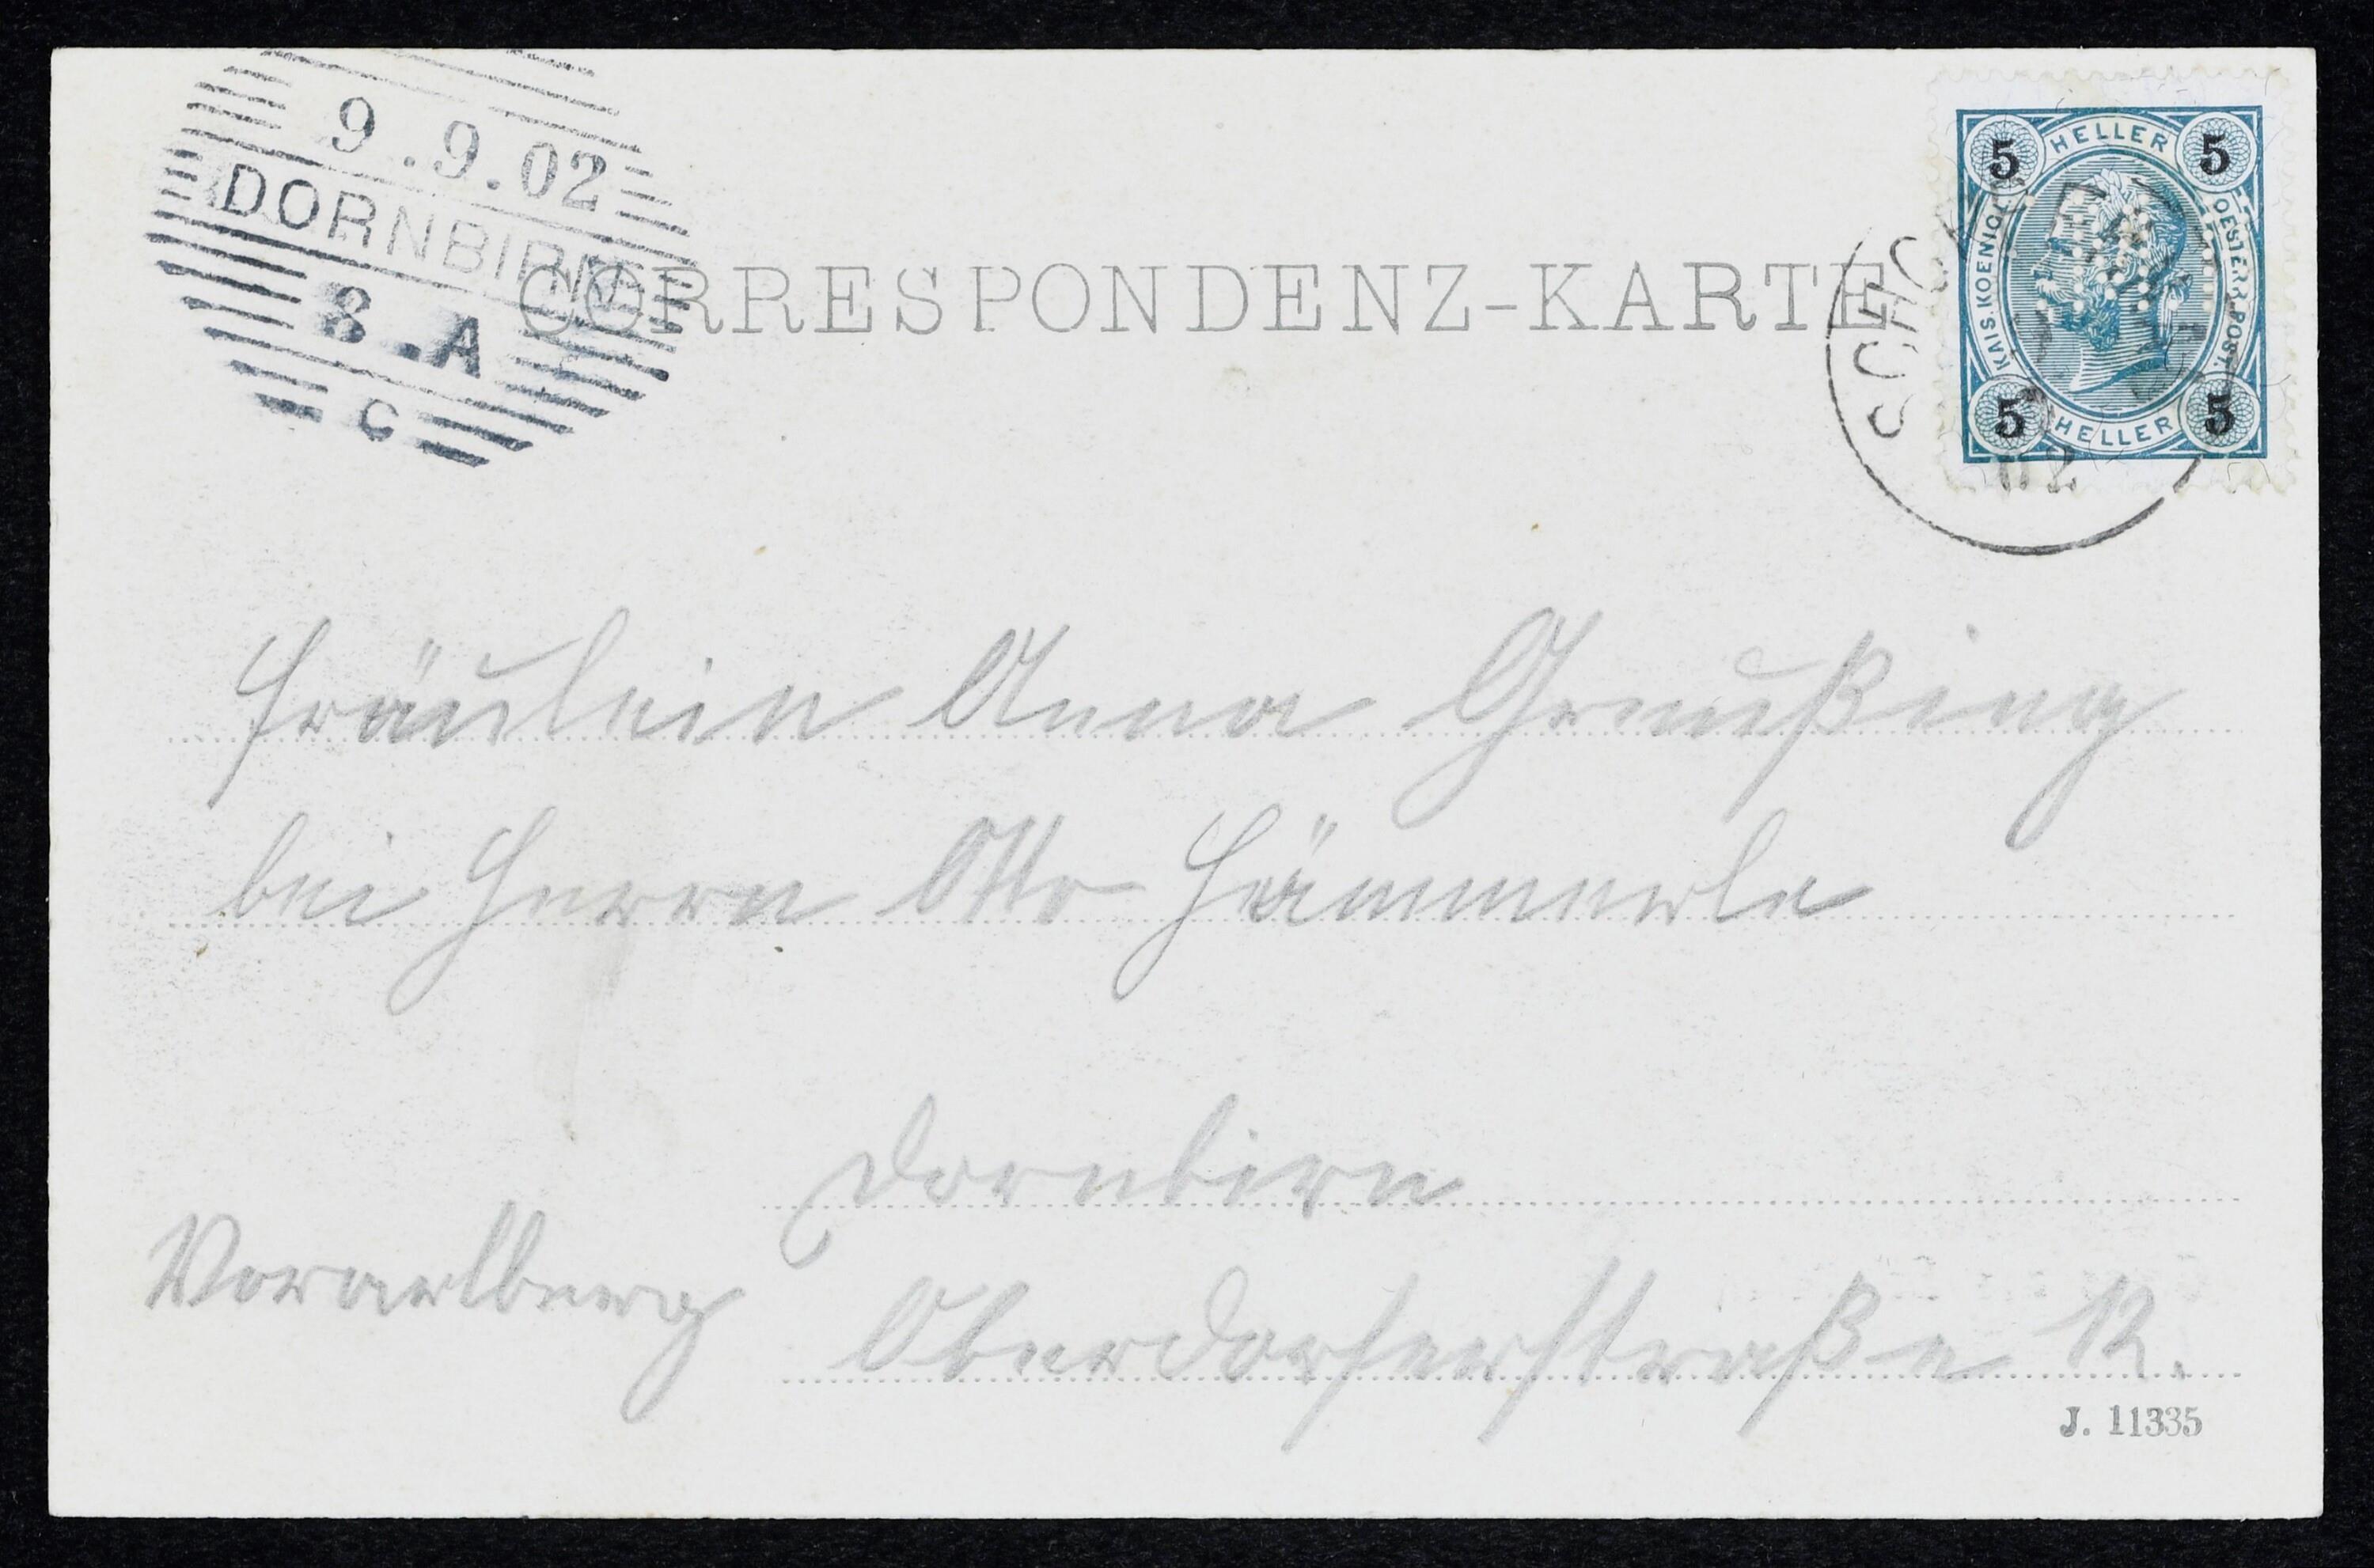 9.9.02
DORNBIRN
8.A
C
CORRESPONDENZ-KARTE
5 HELLER 5
KAIS. KOENIGL. OESTERR. POST.
5 HELLER 5
02
Fräulein Anna Greußing
bei Herrn Otto Hämmerle
Dornbirn
Vorarlberg
Oberdorferstraße 12.
J. 11335